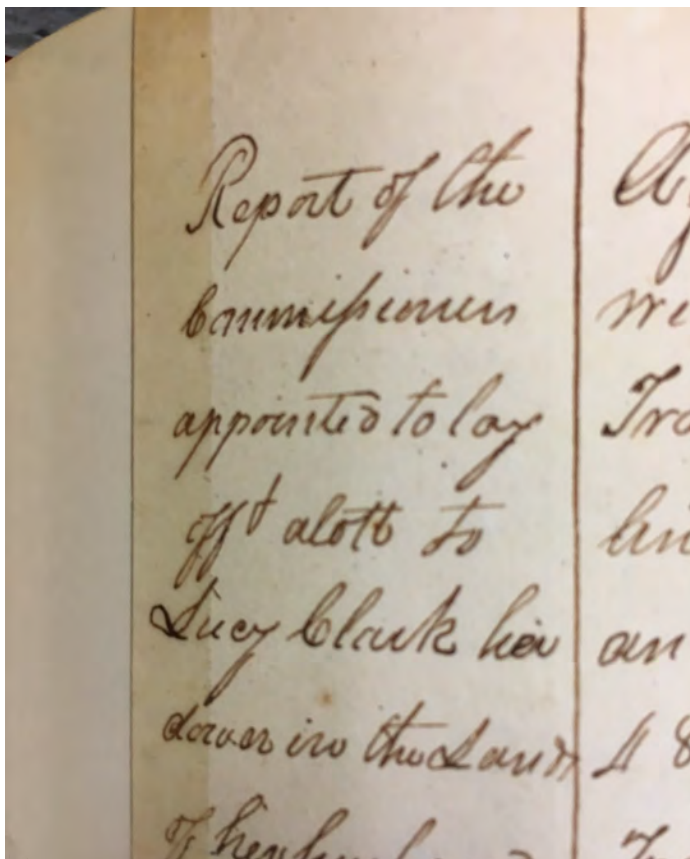 Report of the
Commissioners
appointed to lay
off & alott to
Lucy Clark her
dower in the Lands
of her husband